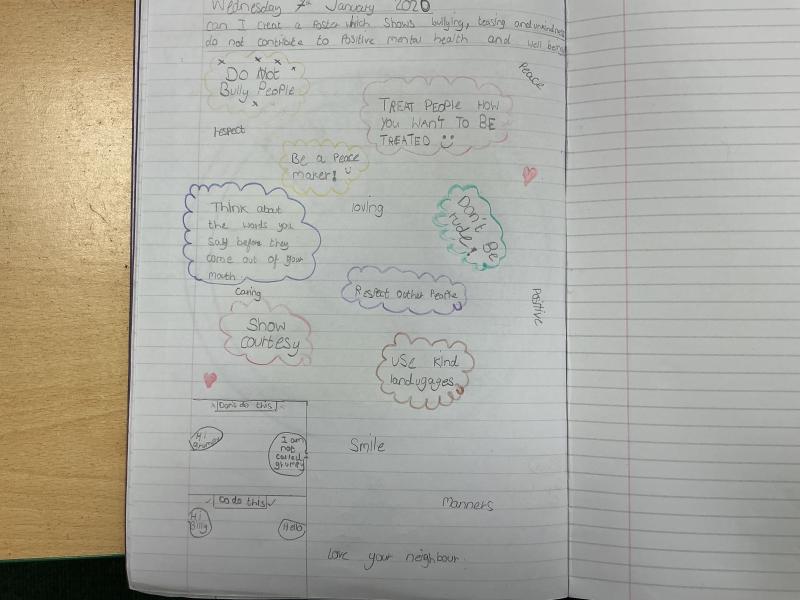 Wednesday 7th January 2020
Can I creat a Poster which shows bullying, teasing and unkindness
do not contribute to Positive mental health and well being
Peace
Do Not
Bully People
TREAT PEOPLE HOW
YOU WANT TO BE
TREATED
respect
Be a Peace
maker!
loving
Think about
the words you
say before they
come out of your
mouth.
Don't Be
rude!
Caring
Respect outher People
Positive
Show
courtesy
USE Kind
landugages
Don't do this
Hi
Grumpy
I am
not
called
grumpy
Smile
Do do this
Hi
Billy
Hello
Manners
love your neighbour.